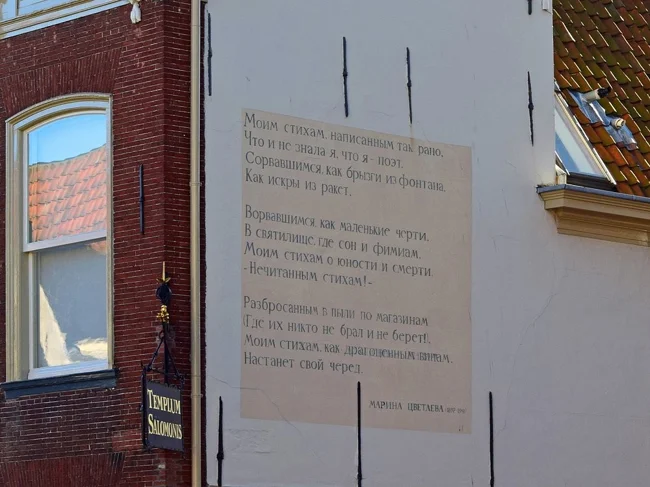 Моим стихам, написанным так рано,
Что и не знала я, что я - поэт,
Сорвавшимся, как брызги из фонтана,
Как искры из ракет,
Ворвавшимся, как маленькие черти,
В святилище, где сон и фимиам,
Моим стихам о юности и смерти,
- Нечитанным стихам! -
Разбросанным в пыли по магазинам
(Где их никто не брал и не берет!),
Моим стихам, как драгоценным винам,
Настанет свой черед.
МАРИНА ЦВЕТАЕВА
TEMPLUM
SALOMONIS